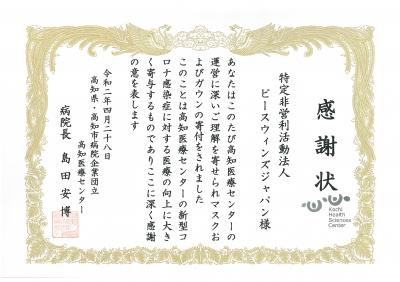 感謝状
Kochi
Health
Sciences
Center
特定非営利活動法人
ピースウィンズジャパン様
あなたはこのたび高知医療センターの
運営に深いご理解を寄せられマスクお
よびガウンの寄付をされました
このことは高知医療センターの新型コ
ロナ感染症に対する医療の向上に大き
く寄与するものでありここに深く感謝
の意を表します
令和二年四月二十八日
高知県・高知市病院企業団立
高知医療センター
病院長 島田安博